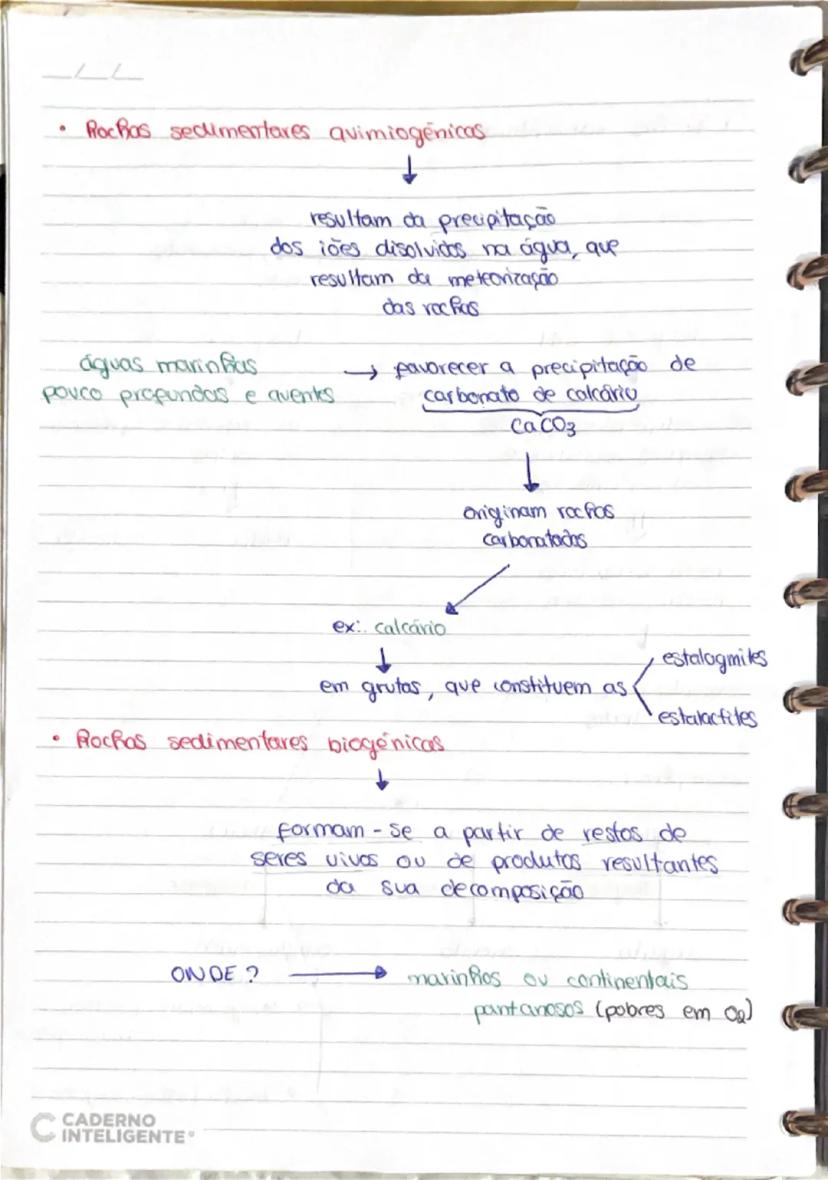 • Rochas sedimentares quimiogénicas
resultam da precipitação
dos iões disolvidos na água, que
resultam da meteorização
das rochas
águas marinhas → favorecer a precipitação de
pouco profundas e quentes carbonato de calcário
CaCO3
originam rochas
carbonatadas
ex: calcário
estalagmites
em grutas, que constituem as
estalactites
• Rochas sedimentares biogénicas
formam-se a partir de restos de
seres vivos ou de produtos resultantes
da sua decomposição
ONDE? → marinhos ou continentais
pantanosos (pobres em O2)
CADERNO
INTELIGENTE®